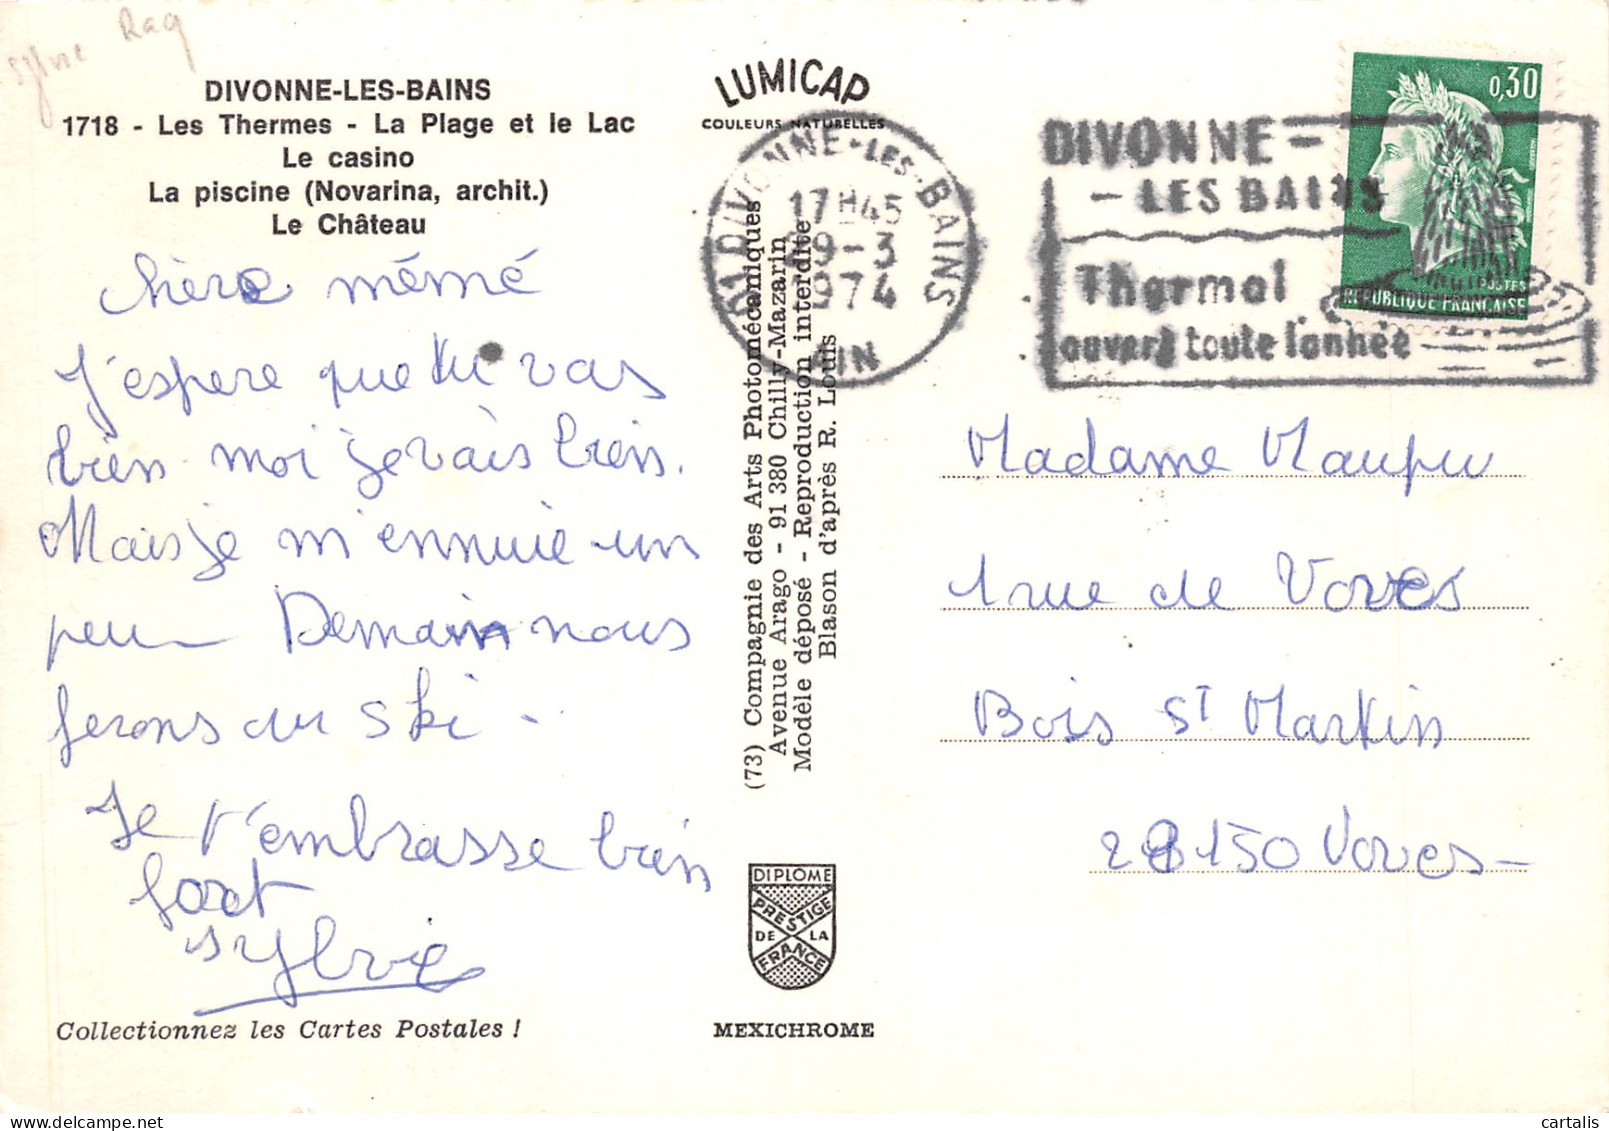 Sylvie Rag
DIVONNE-LES-BAINS
1718 - Les Thermes - La Plage et le Lac
Le casino
La piscine (Novarina, archit.)
Le Château
chère mémé
J'espere que tu vas
bien. moi je vais bien.
Mais je m'ennuie un
peu Demain nous
ferons du ski -
Je t'embrasse bien
fort
Sylvie
Collectionnez les Cartes Postales !
LUMICAP
COULEURS NATURELLES
(73) Compagnie des Arts Photomécaniques
Avenue Arago - 91 380 Chilly-Mazarin
Modèle déposé - Reproduction interdite
Blason d'après R. Louis
DIPLOME
PRESTIGE
DE LA
FRANCE
MEXICHROME
01 DIVONNE-LES-BAINS
17H45
9-3
1974
AIN
DIVONNE-
-LES BAINS
Thermal
ouvert toute l'année
0,30
POSTES
REPUBLIQUE FRANÇAISE
Madame Maupu
1 rue de Voves
Bois St Martin
28150 Voves
cartalis